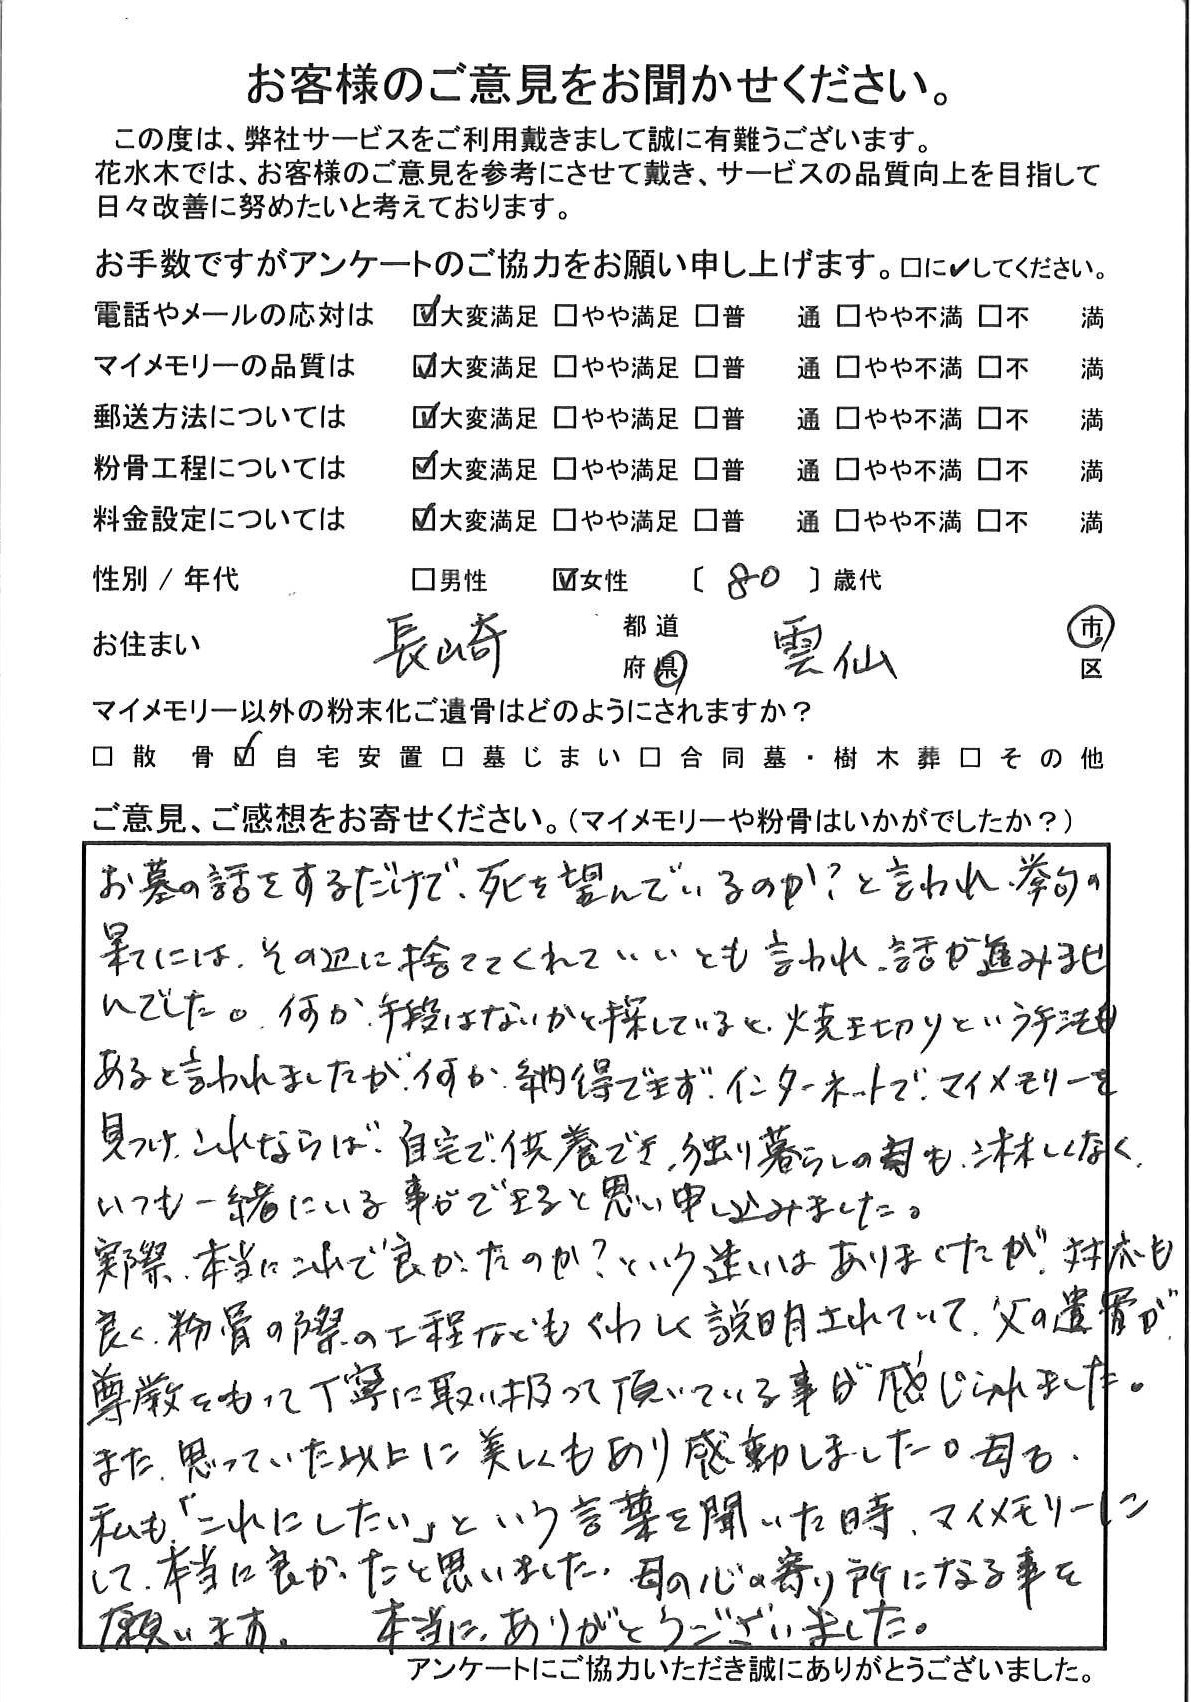 お客様のご意見をお聞かせください。
この度は、弊社サービスをご利用戴きまして誠に有難うございます。
花水木では、お客様のご意見を参考にさせて戴き、サービスの品質向上を目指して
日々改善に努めたいと考えております。
お手数ですがアンケートのご協力をお願い申し上げます。□に✓してください。
電話やメールの応対は ☑大変満足 □やや満足 □普 通 □やや不満 □不 満
マイメモリーの品質は ☑大変満足 □やや満足 □普 通 □やや不満 □不 満
郵送方法については ☑大変満足 □やや満足 □普 通 □やや不満 □不 満
粉骨工程については ☑大変満足 □やや満足 □普 通 □やや不満 □不 満
料金設定については ☑大変満足 □やや満足 □普 通 □やや不満 □不 満
性別 / 年代 □男性 ☑女性 〔 80 〕歳代
お住まい 長崎 都道府県 雲仙 市区
マイメモリー以外の粉末化ご遺骨はどのようにされますか？
□散 骨 ☑自宅安置 □墓じまい □合同墓・樹木葬 □その他
ご意見、ご感想をお寄せください。（マイメモリーや粉骨はいかがでしたか？）
お墓の話をするだけで、死を望んでいるのか？と言われ、挙句の
果てには、その辺に捨ててくれていいとも言われ、話が進みませ
んでした。何か、手段はないかと探していると、焼き切りという手法も
あると言われましたが、何か、納得できず、インターネットで、マイメモリーを
見つけ、これならば、自宅で、供養でき、独り暮らしの母も、淋しくなく、
いつも一緒にいる事ができると思い申し込みました。
実際、本当にこれで良かったのか？という迷いはありましたが、対応も
良く、粉骨の際の工程などもくわしく説明されていて、父の遺骨が、
尊敬をもって丁寧に取り扱って頂いている事が感じられました。
また、思っていた以上に美しくもあり感動しました。母も、
私も、「これにしたい」という言葉を聞いた時、マイメモリーに
して、本当に良かったと思いました。母の心の寄り所になる事を
願います。 本当に、ありがとうございました。
アンケートにご協力いただき誠にありがとうございました。